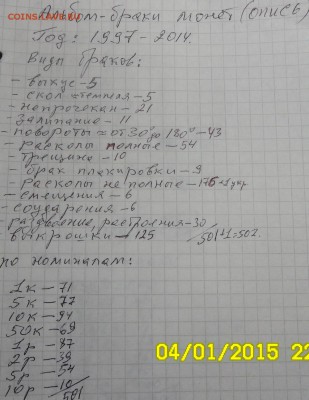 Альбом-браки монет (опись)
Год: 1997-2014.
Виды браков:
- выкус-5
- скол =темная-5
- непрочекан - 21
- Залипание - 11
- повороты=от 30° до 180°-43
- расколы полные - 54
- трещина - 10
- брак плакировки - 9
- расколы не полные - 176
- смещения - 6
- соударения - 6
- раздвоение, растроения-30
выкрошки - 125
501+1=502.
по номиналам:
1к - 71
5к - 77
10к - 94
50к - 69
1р - 87
2р - 39
5р - 54
10р - 10
501
04/01/2015 22